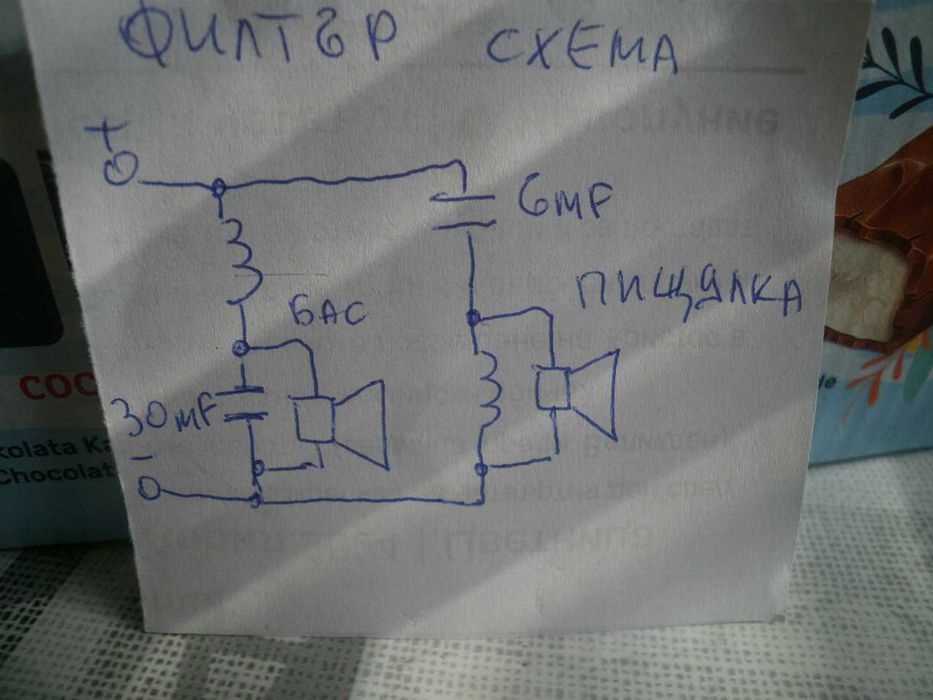 ФИЛТЪР СХЕМА
+
6MF
ПИЩЯЛКА
БАС
30MF
-
COC
kolata Ka
Chocolat